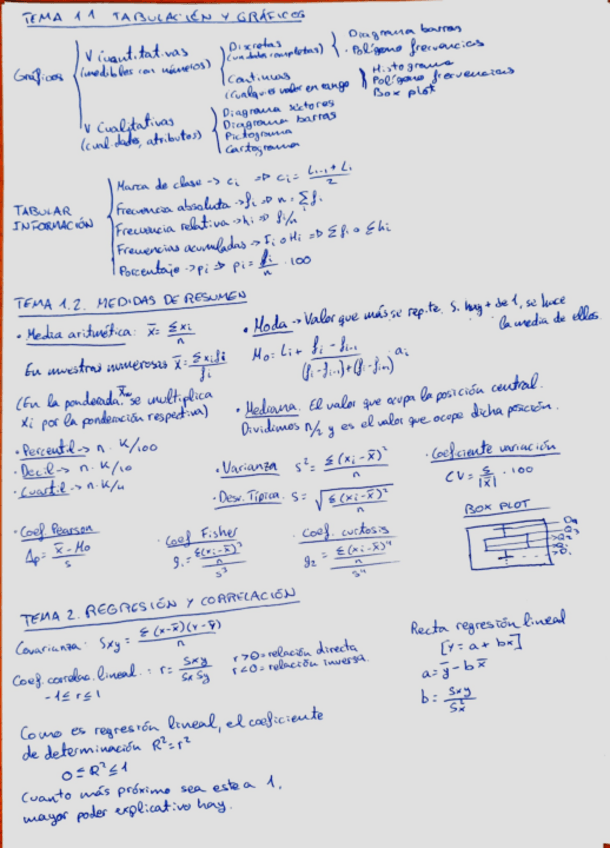 TEMA 1.1 TABULACIÓN Y GRÁFICOS
Gráficos
V Cuantitativas
(medibles con números)
Discretas
(un dato completas)
Diagrama barras
Polígono frecuencias
Continuas
(cualquier valor en rango)
Histograma
Polígono frecuencias
Box plot
V Cualitativas
(cual. dado, atributos)
Diagrama sectores
Diagrama barras
Pictograma
Cartograma
TABULAR
INFORMACIÓN
Marca de clase -> ci => ci = (Li-1 + Li)/2
Frecuencia absoluta -> fi => n = Σ fi
Frecuencia relativa -> hi => fi/n
Frecuencias acumuladas -> Fi o Hi => Σfi o Σhi
Porcentaje -> pi => pi = fi/n · 100
TEMA 1.2. MEDIDAS DE RESUMEN
· Media aritmética: x̄ = Σxi/n
En muestras numerosas x̄ = Σxifi/fi
(En la ponderada x̄w se multiplica
xi por la ponderación respectiva)
· Percentil -> n · K/100
· Decil -> n · K/10
· Cuartil -> n · K/4
· Moda -> Valor que más se repite. Si hay + de 1, se hace
la media de ellos
Mo = Li + (fi - fi-1)/((fi - fi-1) + (fi - fi+1)) · ai
· Mediana. El valor que ocupa la posición central.
Dividimos n/2 y es el valor que ocupe dicha posición.
· Varianza s² = Σ(xi - x̄)²/n
· Desv. Típica. s = √(Σ(xi - x̄)²/n)
· Coeficiente variación
CV = s/|x̄| · 100
· Coef Pearson
Ap = (x̄ - Mo)/s
· Coef Fisher
g1 = (Σ(xi - x̄)³/n)/s³
· Coef. curtosis
g2 = (Σ(xi - x̄)⁴/n)/s⁴
BOX PLOT
TEMA 2. REGRESIÓN Y CORRELACIÓN
Covarianza: Sxy = Σ(x-x̄)(y-ȳ)/n
Coef. correlac. lineal: r = Sxy/SxSy
r>0 = relación directa
r<0 = relación inversa.
-1 ≤ r ≤ 1
Como es regresión lineal, el coeficiente
de determinación R² = r²
0 ≤ R² ≤ 1
Cuanto más próximo sea este a 1,
mayor poder explicativo hay.
Recta regresión lineal
[Y = a + bx]
a = ȳ - b x̄
b = Sxy/S²x